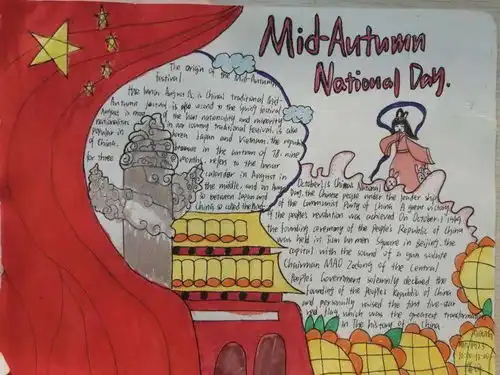 Mid-Autumn
National Day.
The origin of the Mid-Autumn
festival.
the lunar August 15, is China's traditional Mid-
Autumn is also second to the Spring festival
August is most of the han nationality and minority
nationalities in our country traditional festival. is also
popular in Korea Japan and Vietnam. the republic
of China. because in the autumn of 78. nine
for three months, refers to the lunar
calendar in August in
the middle, and on August
is between Japan and
China, so called the
October 1 is China's National
Day, the Chinese people under the leader ship
of the Communist Party of China. A great victory
of the people's revolution was achieved On October 1 1949
the founding ceremony of the People's Republic of China
was held in Tian'an men Square in Beijing, the
capital with the sound of a gun salute
Chairman MAO Zedong of the Central
People's Government solemnly declared the
founding of the People's Republic of China
and personally raised the first five-star
red flag, which was the greatest
in The history of China.